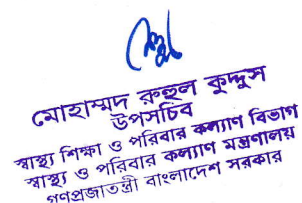 মোহাম্মদ রুহুল কুদ্দুস
উপসচিব
স্বাস্থ্য শিক্ষা ও পরিবার কল্যাণ বিভাগ
স্বাস্থ্য ও পরিবার কল্যাণ মন্ত্রণালয়
গণপ্রজাতন্ত্রী বাংলাদেশ সরকার